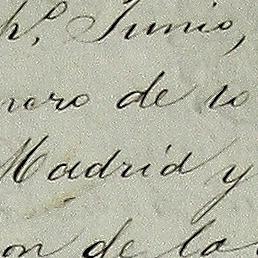 h.º Junio,
nero de lo
Madrid y
on de la